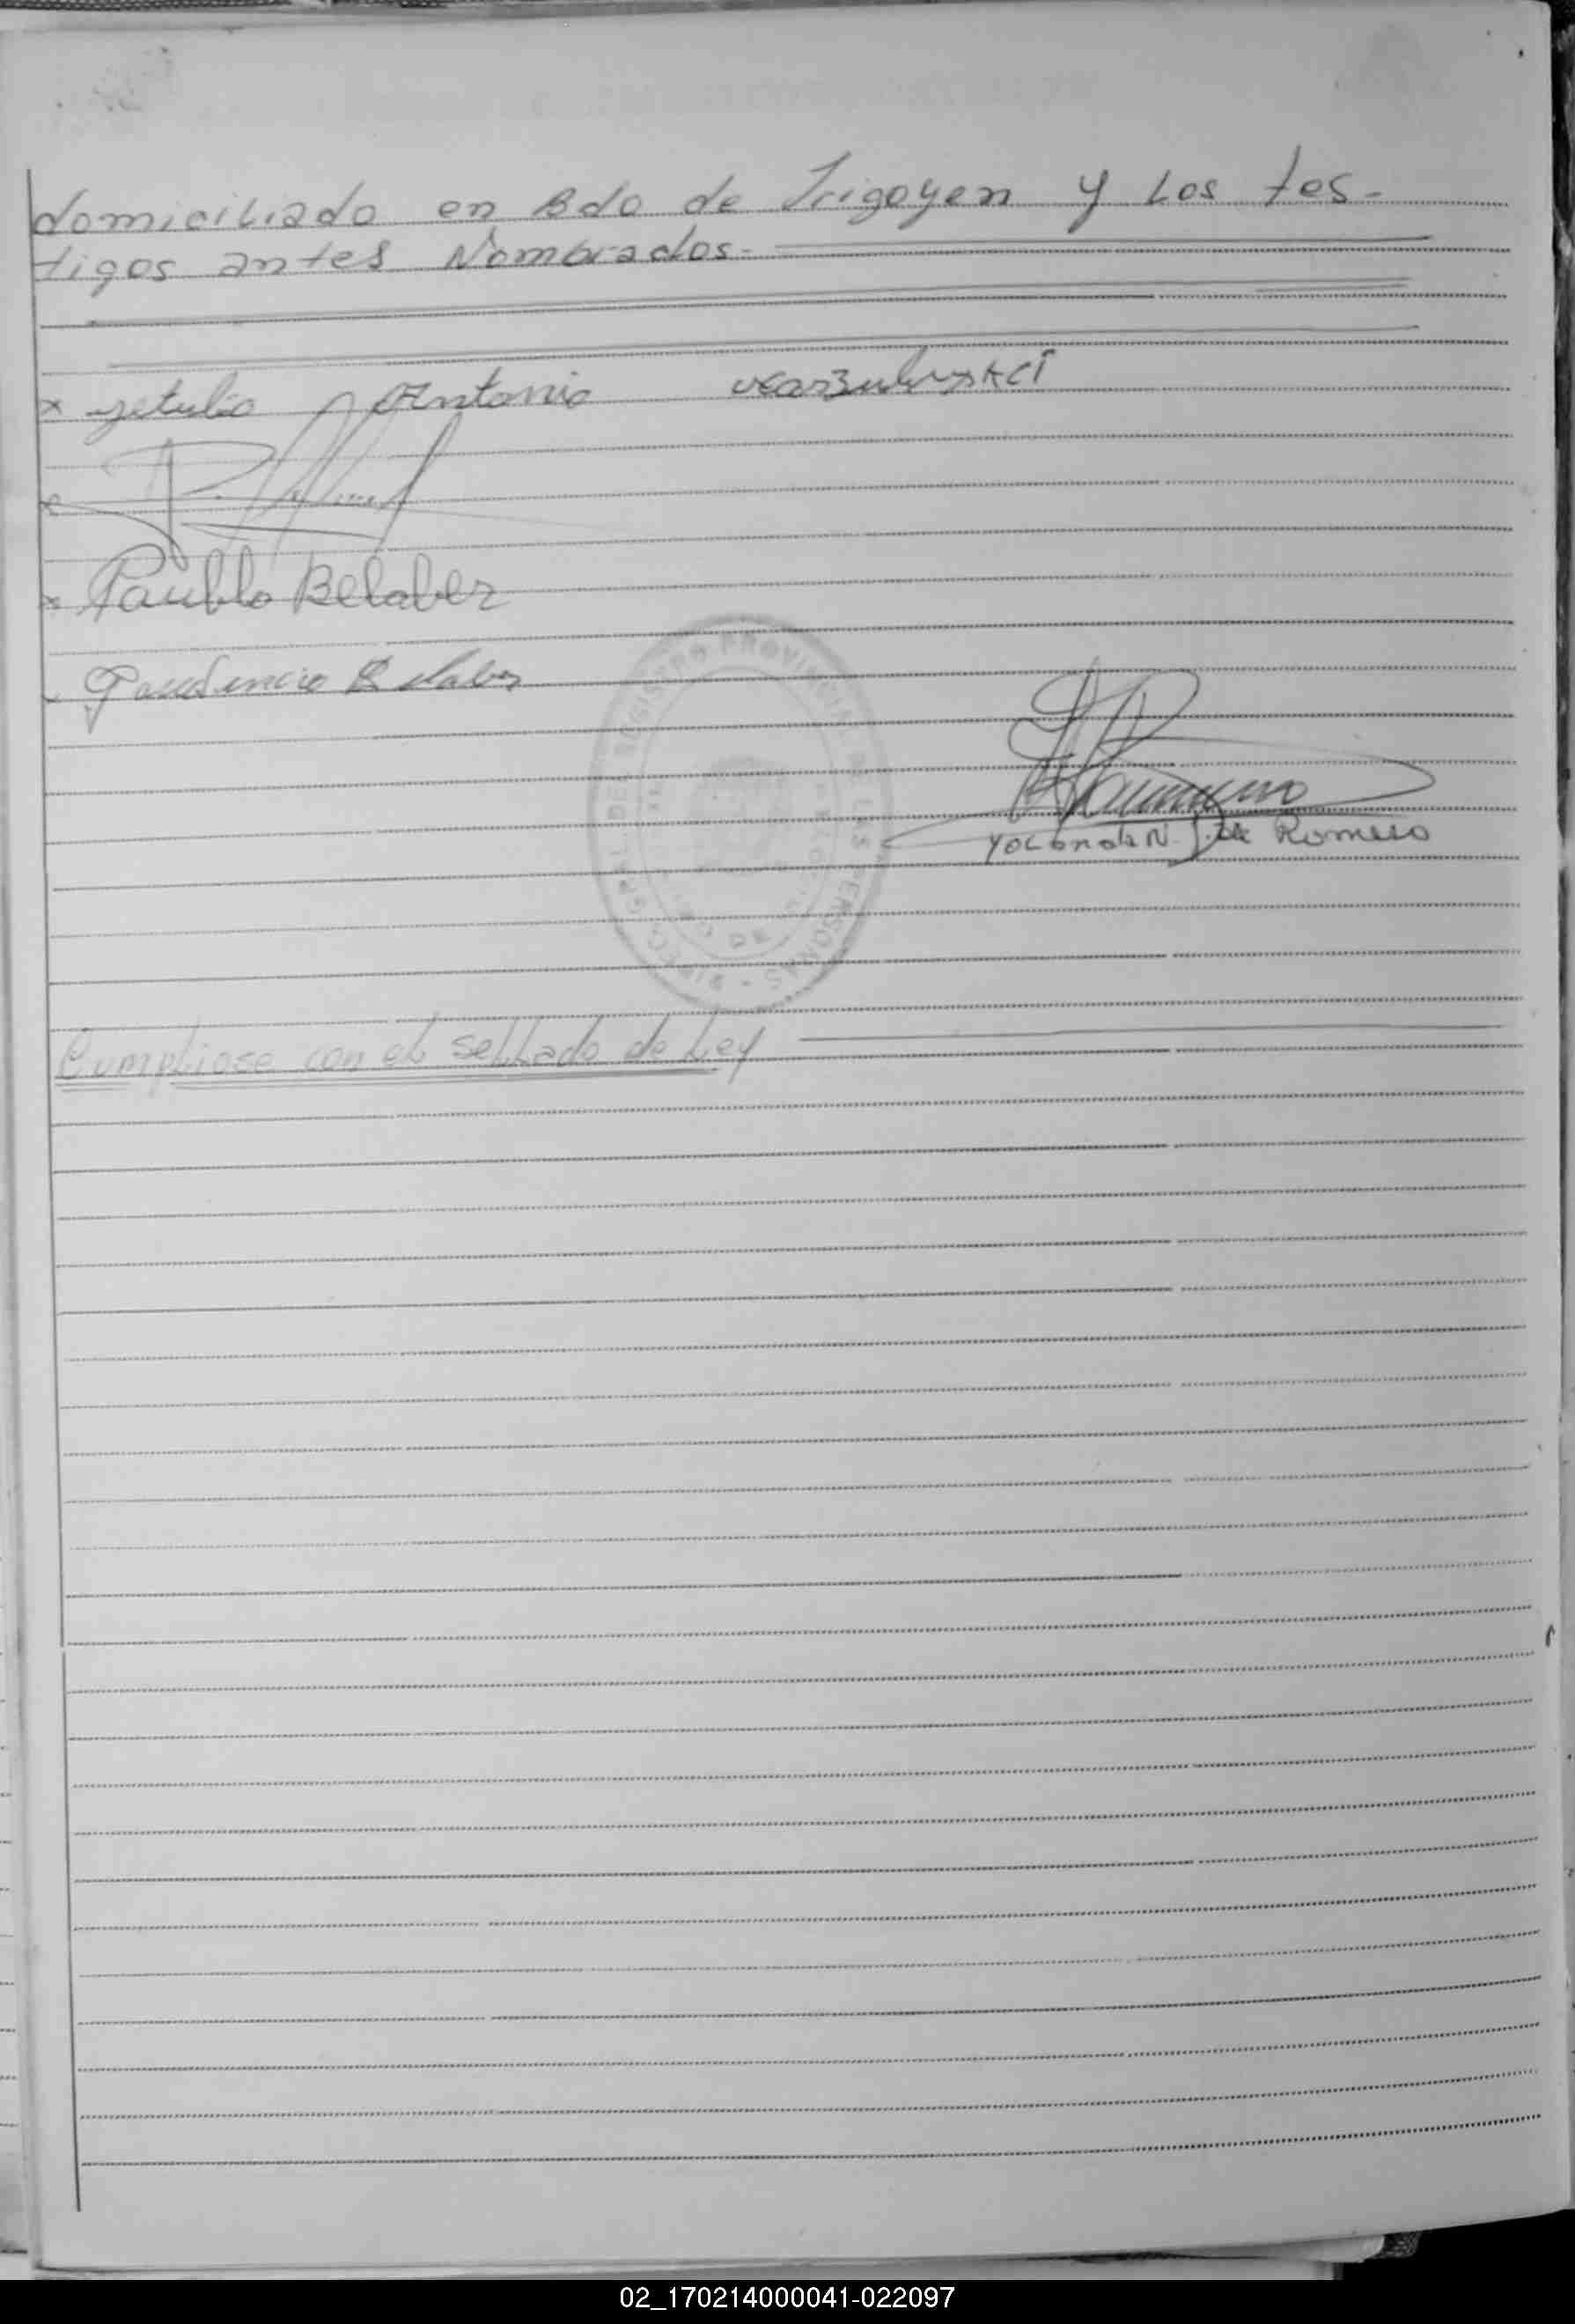 domiciliado en Bdo de Irigoyen y Los tes-
tigos antes Nombrados.-
x getulio Antonio
x
x Paublo Belaber
Gaudencio Belaber
Yolanda N. J. de Romero
DIRECCION GRAL DEL REGISTRO PROVINCIAL DE LAS PERSONAS
Cumpliose con el sellado de Ley
02_170214000041-022097